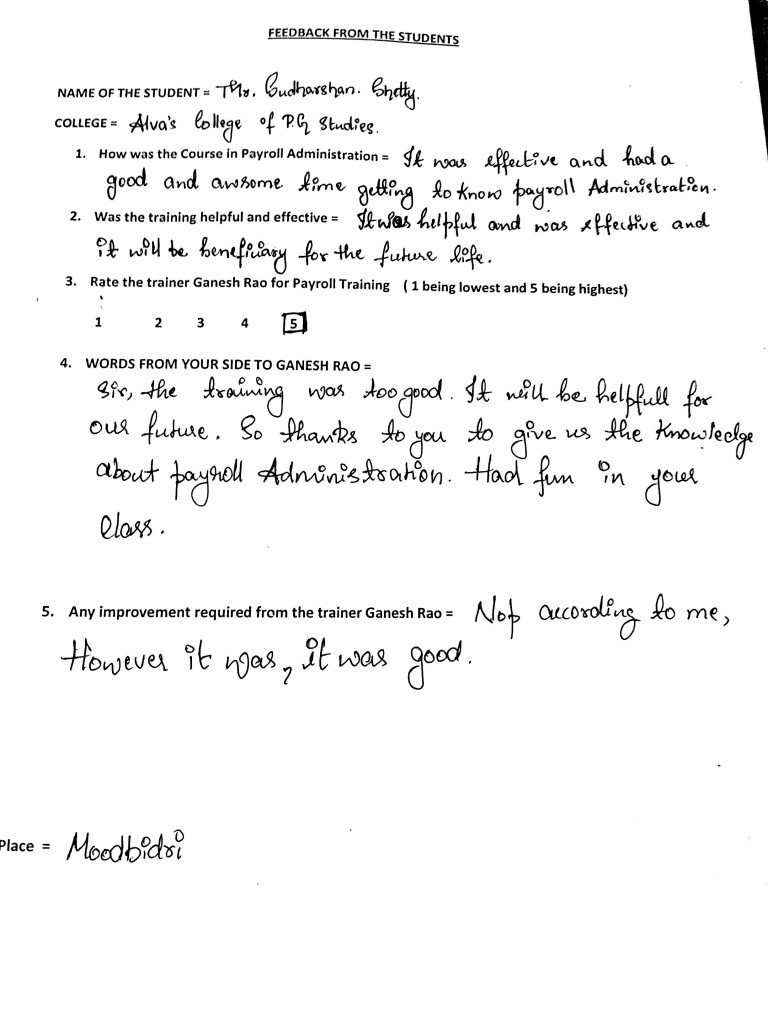 FEEDBACK FROM THE STUDENTS
NAME OF THE STUDENT = Mr. Sudharshan. Shetty.
COLLEGE = Alva's College of P.G Studies.
1. How was the Course in Payroll Administration = It was effective and had a
good and awsome time getting to know payroll Administration.
2. Was the training helpful and effective = It was helpful and was effective and
it will be beneficiary for the future life.
3. Rate the trainer Ganesh Rao for Payroll Training ( 1 being lowest and 5 being highest)
1 2 3 4 5
4. WORDS FROM YOUR SIDE TO GANESH RAO =
Sir, the training was too good. It will be helpfull for
our future. So thanks to you to give us the Knowledge
about payroll Administration. Had fun in your
Class.
5. Any improvement required from the trainer Ganesh Rao = Nop according to me,
However it was, it was good.
Place = Moodbidri